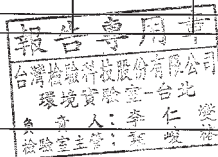 報告專用章
台灣檢驗科技股份有限公司
環境實驗室-台北
負責人:李仁燮
檢驗室主管:葉峻